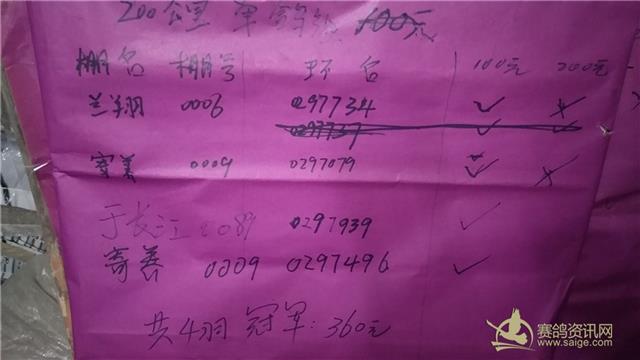 200公里 单 100元
棚名 棚号 环 名 100元 200元
兰翔 0006 0297734
0297737
寄养 0009 0297079
于长江 2089 0297939
寄养 0009 0297496
共4羽 冠军:360元
赛鸽资讯网
www.saige.com